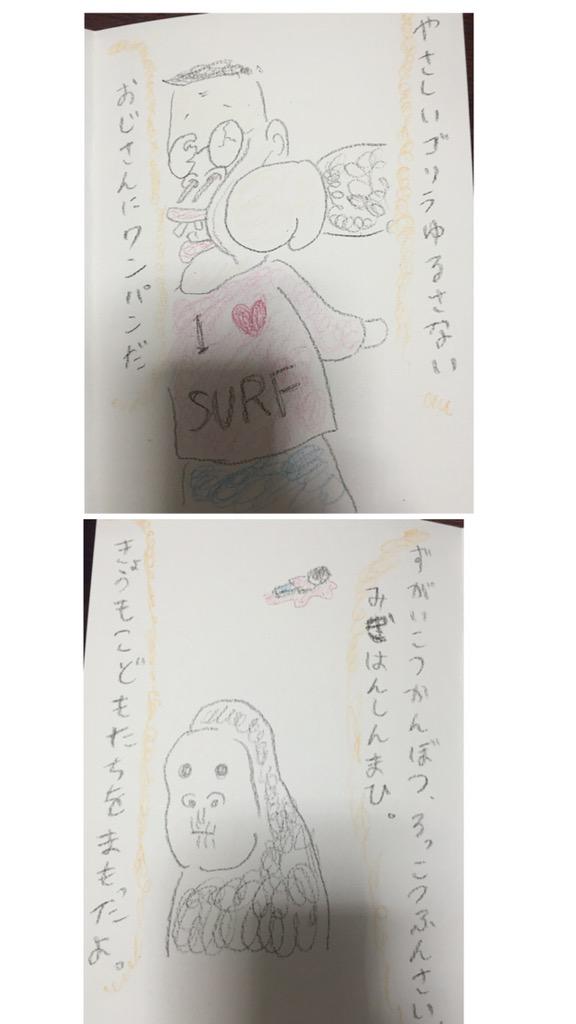 やさしいゴリラゆるさない
おじさんにワンパンだ
I ♥
SURF
ずがいこつかんぼつ、ろっこつふんさい、
みぎはんしんまひ。
きょうもこどもたちをまもったよ。